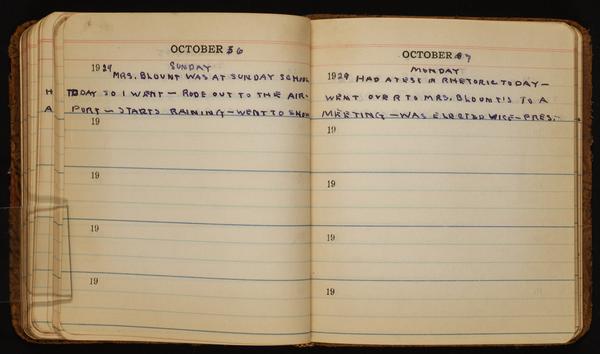 OCTOBER 6
SUNDAY
1929 MRS. BLOUNT WAS AT SUNDAY SCHOOL
TODAY SO I WENT — RODE OUT TO THE AIR-
PORT — STARTS RAINING — WENT TO SHOW
19
19
19
19
OCTOBER 7
MONDAY
1929 HAD A TEST IN RHETORIC TODAY —
WENT OVER TO MRS. BLOUNT'S TO A
MEETING — WAS ELECTED VICE-PRES.
19
19
19
19
H
A